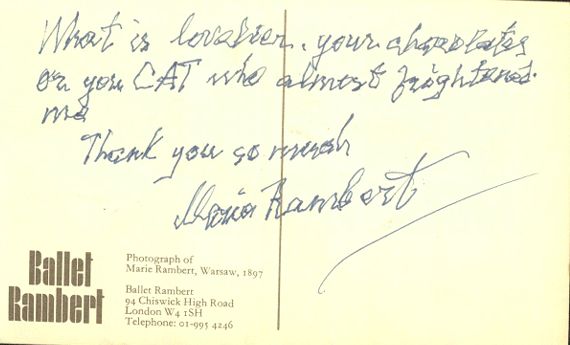 What is lovelier, your chocolates
or you CAT who almost frightened
me
Thank you so much
Marie Rambert
Ballet
Rambert
Photograph of
Marie Rambert, Warsaw, 1897
Ballet Rambert
94 Chiswick High Road
London W4 1SH
Telephone: 01-995 4246